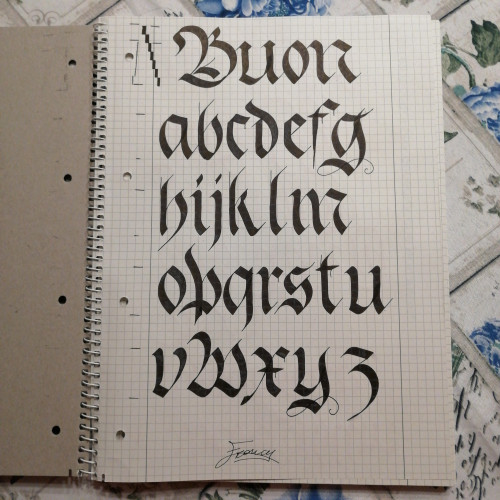 Buon
abcdefg
hijklm
opqrstu
vwxyz